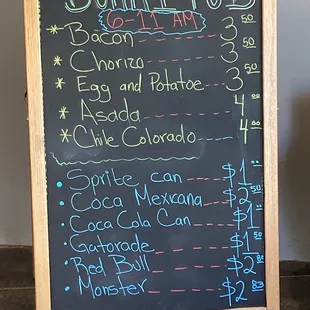 6-11 AM
* Bacon 3.50
* Chorizo 3.50
* Egg and Potatoe 3.50
* Asada 4.00
* Chile Colorado 4.00
• Sprite can $1.00
• Coca Mexicana $2.50
• Coca Cola Can $1.00
• Gatorade $1.50
• Red Bull $2.80
• Monster $2.83